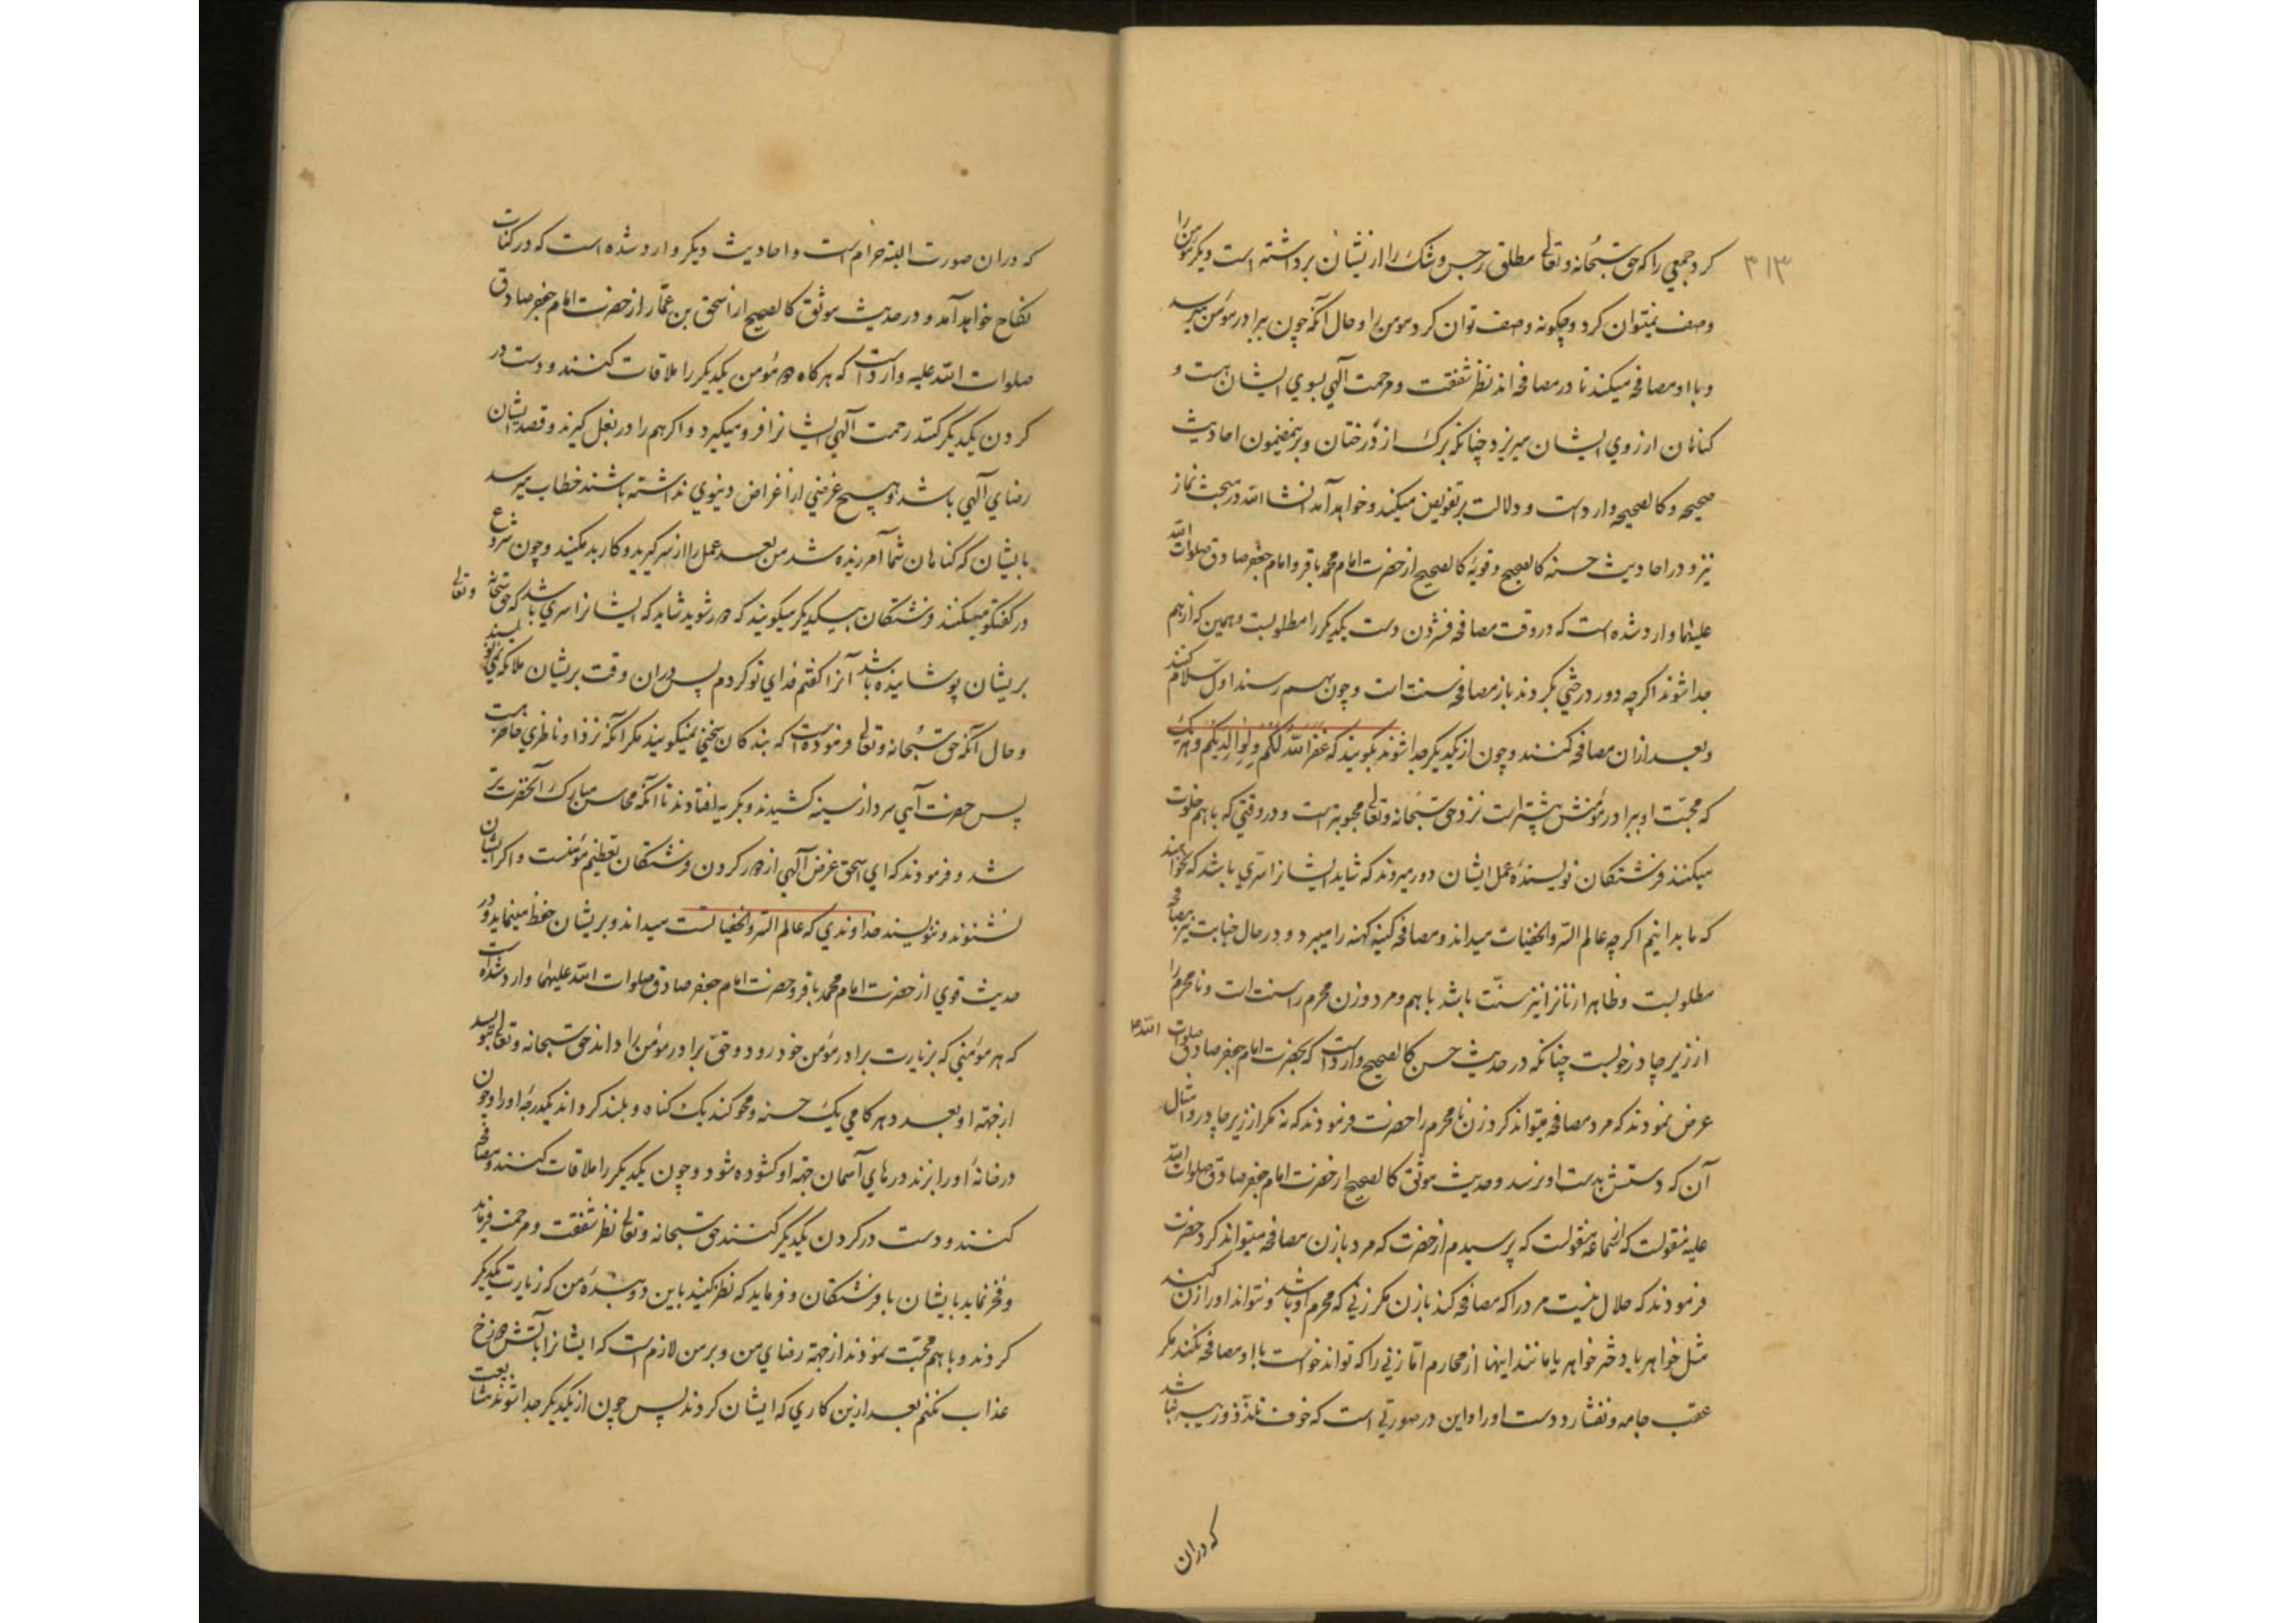 ۳۱۳
کرد جمعي را که حق سبحانه و تعالی مطلق رجس و شک را از نشان برداشته است و دیگر مؤمن را
وصف نمیتوان کرد و چکونه وصف توان کرد مومن را و حال آنکه چون ببرادر مؤمن میرسد
و با او مصافحه میکند تا در مصافحه‌اند نظر شفقت و مرحمت آلهي بسوي ایشان هست و
کناهان از روي ایشان میریزد چنانکه برک از درختان و برینمضمون احادیث
صحیحه و کالصحیحه وارد است و دلالت بر تفویض میکند و خواهد آمد انشاالله در مبحث نماز
نیز و در احادیث حسنه کالصحیح و قویه کالصحیح از حضرت امام محمد باقر و امام جعفر صادق صلوات الله
علیهما وارد شده است که در وقت مصافحه فشردن دست یکدیکر را مطلوبست و همین که از هم
جدا شوند اکرچه دور درختي بکردند باز مصافحه سنت است و چون بهم رسند اول سلام کنند
و بعد از ان مصافحه کنند و چون از یکدیکر جدا شوند بکویند که غفر الله لکم و لوالدیکم و هر یک
که محبت او ببرادر مؤمنش بیشتر است نزد حق سبحانه و تعالی محبوبتر است و در وقتي که با هم خلوت
میکنند فرشتکان نویسندهٔ عمل ایشان دور میروند که شاید ایشانرا سري باشد که نخواهند
که ما بدانیم اکرچه عالم السر و الخفیات میداند و مصافحه کینه کهنه را میبرد و در حال جنابت نیز مصافحه
مطلوبست و ظاهرا زنانرا نیز سنت باشد با هم و مرد و زن محرم را سنت است و نامحرم را
از زیر چادر خوبست چنانکه در حدیث حسن کالصحیح وارد است که بحضرت امام جعفر صادق صلوات الله علیه
عرض نمودند که مرد مصافحه میتواند کرد زن نامحرم را حضرت فرمودند که نه مکر از زیر چادر و امثال
آن که دستش بدست او نرسد و حدیث موثق کالصحیح از حضرت امام جعفر صادق صلوات الله
علیه منقولست که سماعه منقولست که پرسیدم از حضرت که مرد با زن مصافحه میتواند کرد حضرت
فرمودند که حلال نیست مرد را که مصافحه کند با زن مکر زني که محرم او باشد و نتواند او را زن کند
مثل خواهر یا دختر خواهر یا مانند اینها از محارم اما زني را که تواند خواست با او مصافحه نکند مکر
عقب جامه و نفشارد دست او را و این در صورتي است که خوف تلذذ و ریبه نباشد
که دران
که دران صورت البته حرام است و احادیث دیکر وارد شده است که در کتاب
نکاح خواهد آمد و در حدیث موثق کالصحیح از اسحق بن عمار از حضرت امام جعفر صادق
صلوات الله علیه وارد است که هرکاه دو مؤمن یکدیکر را ملاقات کنند و دست در
کردن یکدیکر کنند رحمت آلهي ایشانرا فرو میکیرد و اکر هم را در بغل کیرند و قصد ایشان
رضاي آلهي باشد و هیچ غرضي از اغراض دنیوي نداشته باشند خطاب میرسد
بایشان که کناهان شما آمرزیده شد من بعد عمل را از سر کیرید و کار بد مکنید و چون شروع
در کفتکو میکنند فرشتکان بیکدیکر میکویند که دور شوید شاید که ایشانرا سري باشد که حق سبحانه و تعالی
بریشان پوشانیده باشد آنرا کفتم فداي تو کردم پس دران وقت بریشان ملائکه چیزي نمینویسند
و حال آنکه حق سبحانه و تعالی فرموده است که بندکان سخني نمیکویند مکر آنکه نزد او ناظري حاضر هست
پس حضرت آهي سرد از سینه کشیدند و بکریه افتادند تا آنکه محاسن مبارک آنحضرت تر
شد و فرمودند که اي اسحق غرض آلهي از دور کردن فرشتکان تعظیم مؤمنست و اکر ایشان
نشنوند و ننویسند خداوندي که عالم السر و الخفیاتست میداند و بریشان حفظ مینماید و در
حدیث قوي از حضرت امام محمد باقر و حضرت امام جعفر صادق صلوات الله علیهما وارد شده است
که هر مؤمني که بزیارت برادر مؤمن خود رود و حق برادر مؤمن را داند حق سبحانه و تعالی بنویسد
از جهة او بعدد هر کامي یک حسنه و محو کند یک کناه و بلند کرداند یکدرجه او را و چون
در خانهٔ او را بزند درهاي آسمان جهة او کشوده شود و چون یکدیکر را ملاقات کنند و مصافحه
کنند و دست در کردن یکدیکر کنند حق سبحانه و تعالی نظر شفقت و مرحمت فرماید
و فخر نماید بایشان با فرشتکان و فرماید که نظر کنید باین دو بندهٔ من که زیارت یکدیکر
کردند و با هم محبت نمودند از جهة رضاي من و بر من لازم است که ایشانرا بآتش دوزخ
عذاب نکنم بعد ازین کاري که ایشان کردند پس چون از یکدیکر جدا شوند مشایعت